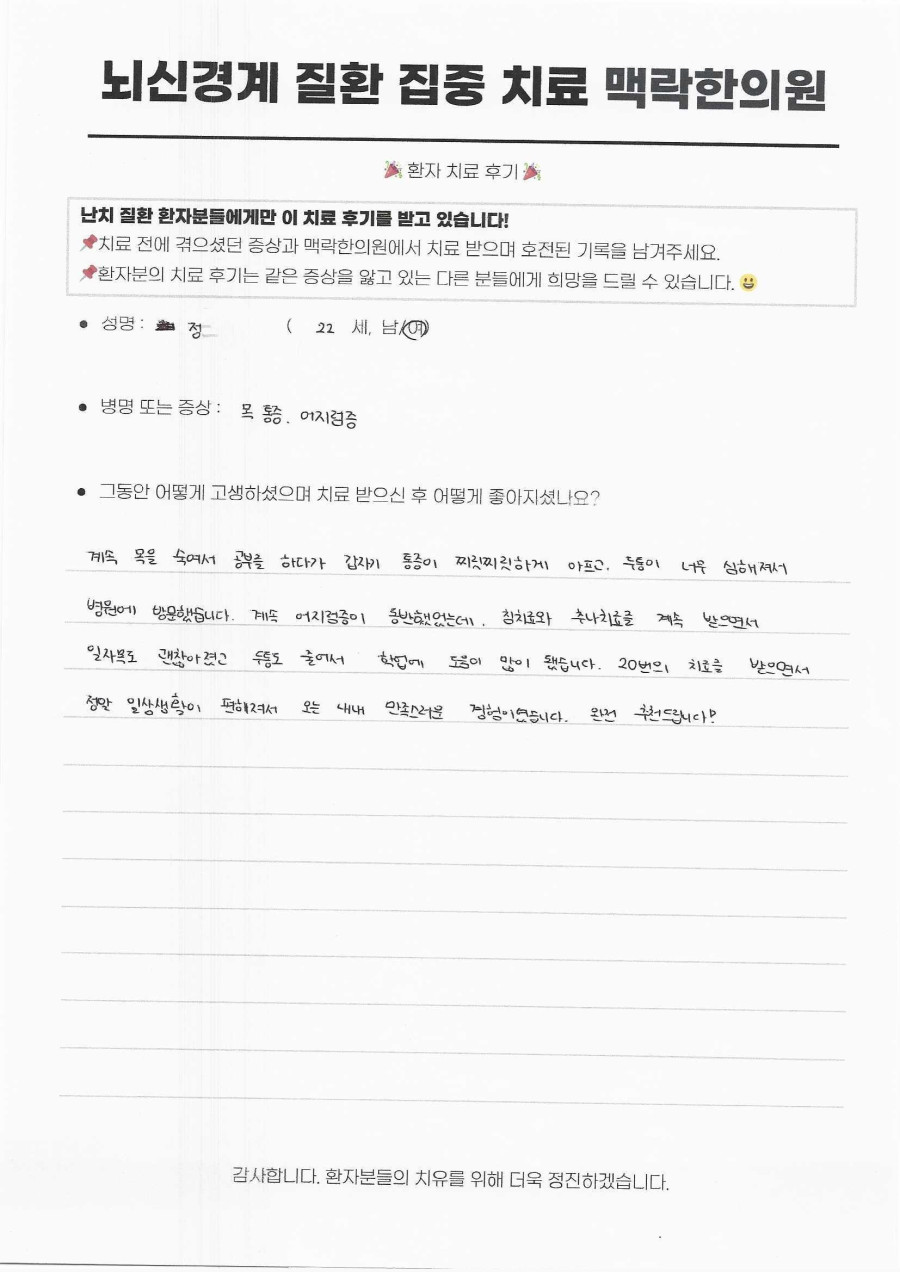 뇌신경계 질환 집중 치료 맥락한의원
🎉 환자 치료 후기 🎉
난치 질환 환자분들에게만 이 치료 후기를 받고 있습니다!
📌치료 전에 겪으셨던 증상과 맥락한의원에서 치료 받으며 호전된 기록을 남겨주세요.
📌환자분의 치료 후기는 같은 증상을 앓고 있는 다른 분들에게 희망을 드릴 수 있습니다. 😃
● 성명 : 정 ( 22 세, 남/여)
● 병명 또는 증상 : 목 통증, 어지럼증
● 그동안 어떻게 고생하셨으며 치료 받으신 후 어떻게 좋아지셨나요?
계속 목을 숙여서 공부를 하다가 갑자기 통증이 찌릿찌릿하게 아프고, 두통이 너무 심해져서
병원에 방문했습니다. 계속 어지럼증이 동반했었는데, 침치료와 추나치료를 계속 받으면서
일자목도 괜찮아졌고 두통도 줄어서 학업에 도움이 많이 됐습니다. 20번의 치료를 받으면서
정말 일상생활이 편해져서 오는 내내 만족스러운 경험이였습니다. 완전 추천드립니다!
감사합니다. 환자분들의 치유를 위해 더욱 정진하겠습니다.